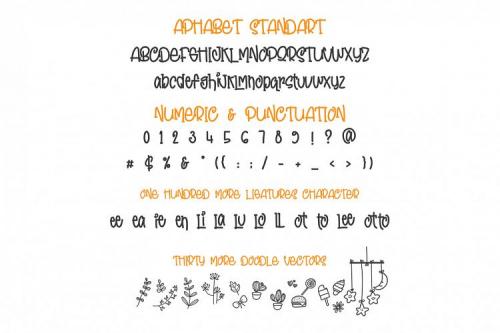 APHABET STANDART
ABCDEFGHIJKLMNOPQRSTUVWXYZ
abcdefghijklmnopqrstuvwxyz
NUMERIC & PUNCTUATION
0 1 2 3 4 5 6 7 8 9 ! ? @
# $ % & * ( ( : ; / - + _ < > ) )
ONE HUNDRED MORE LIGATURES CHARACTER
ee ea ie en li la lu lo ll ot to lee otto
THIRTY MORE DOODLE VECTORS